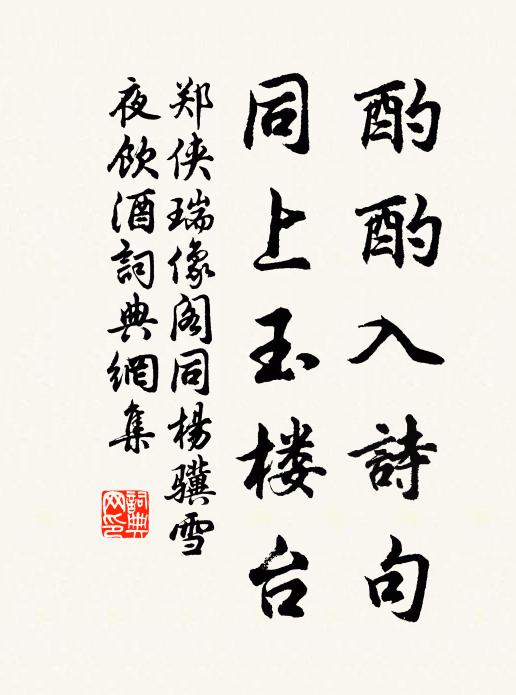 酌酌入詩句
同上玉楼台
郑侠瑞像阁同楊骥雪
夜飲酒詞典網集
詞典网印